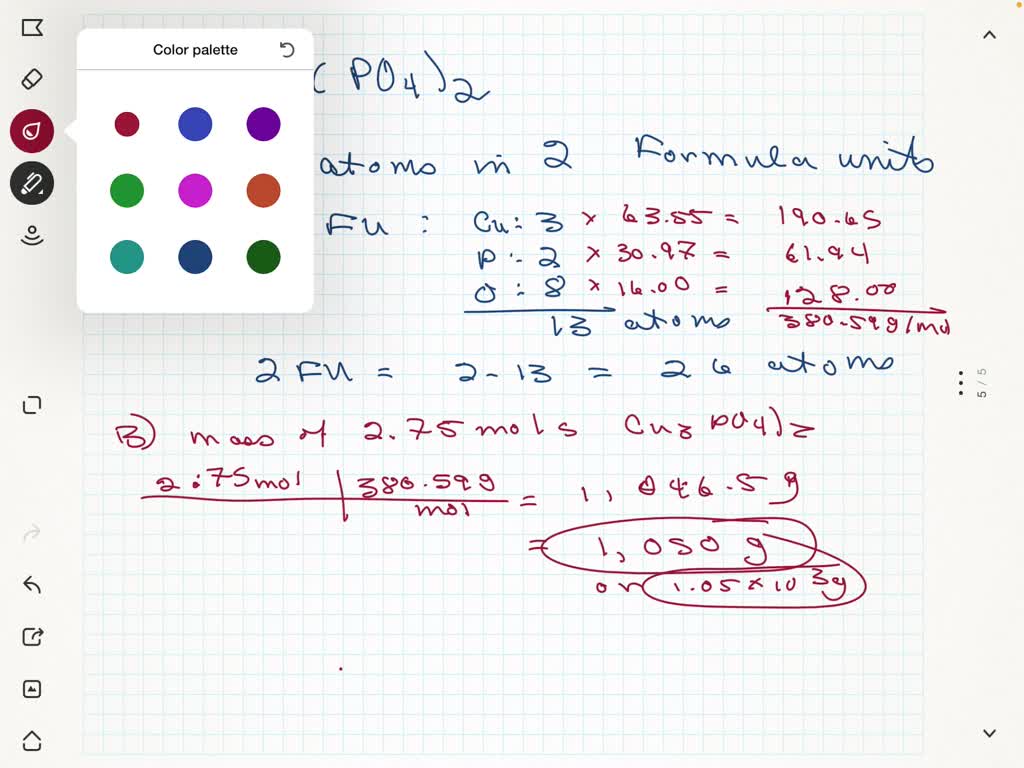 Color palette
(PO4)2
atoms in 2 Formula units
FU : Cu: 3 × 63.55 = 190.65
P : 2 × 30.97 = 61.94
O : 8 × 16.00 = 128.00
13 atoms 380.59g/mol
2 FU = 2 - 13 = 26 atoms
B) mass of 2.75 mols Cu3 PO4)2
2.75mol 380.59g = 1,046.59
mol
= 1,050 g
or 1.05 × 10 3g
5 / 5